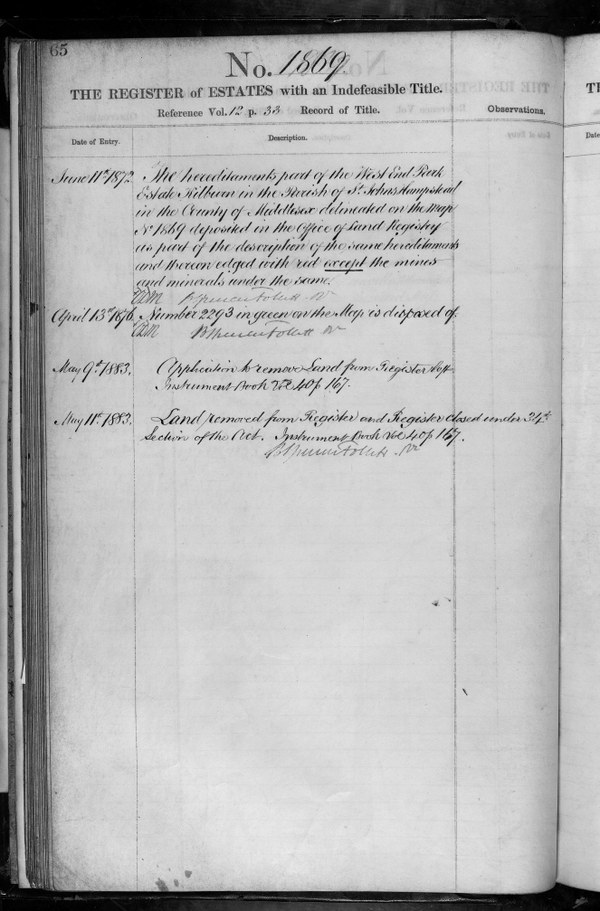 65
No. 1869.
THE REGISTER of ESTATES with an Indefeasible Title.
Reference Vol. 12 p. 33 Record of Title.
Observations.
Date of Entry.
Description.
June 11th 1872. The hereditaments part of the West End Park
Estate Kilburn in the Parish of St. Johns Hampstead
in the County of Middlesex delineated on the Map
No 1869 deposited in the Office of Land Registry
as part of the description of the same hereditaments
and thereon edged with red except the mines
and minerals under the same.
Spencer Follett
April 13th 1876. Number 2293 in green on the Map is disposed of.
Spencer Follett
May 9th 1883. Application to remove Land from Register
Instrument Book Vol. 40 p 167.
May 11th 1883. Land removed from Register and Register closed under 34th
Section of the Act. Instrument Book Vol 40 p 167.
Spencer Follett
TH
Da